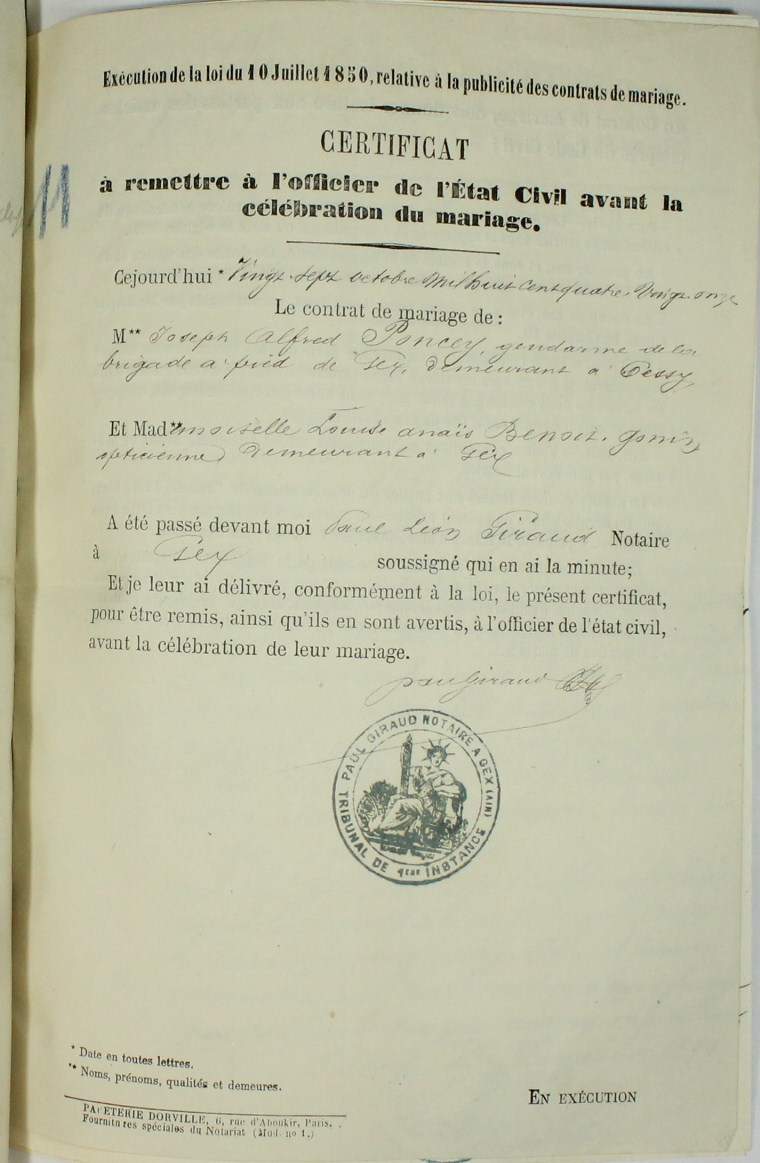 Exécution de la loi du 10 Juillet 1850, relative à la publicité des contrats de mariage.
CERTIFICAT
à remettre à l'officier de l'État Civil avant la
célébration du mariage.
11
Cejourd'hui * Vingt-sept octobre Mil huit cent quatre-Vingt-onze
Le contrat de mariage de :
M** Joseph Alfred Poncey, gendarme de la
brigade à pied de Gex, demeurant à Cessy,
Et Mad**moiselle Louise anaïs Benoit-gonin
demeurant à Gex
A été passé devant moi Paul Léon Giraud Notaire
à Gex soussigné qui en ai la minute;
Et je leur ai délivré, conformément à la loi, le présent certificat,
pour être remis, ainsi qu'ils en sont avertis, à l'officier de l'état civil,
avant la célébration de leur mariage.
paul Giraud
PAUL GIRAUD NOTAIRE A GEX (AIN)
TRIBUNAL DE 1ère INSTANCE
* Date en toutes lettres.
** Noms, prénoms, qualités et demeures.
PAPETERIE DORVILLE, 6, rue d'Aboukir, Paris.
Fournitures spéciales du Notariat (Mod. no 1.)
EN EXÉCUTION